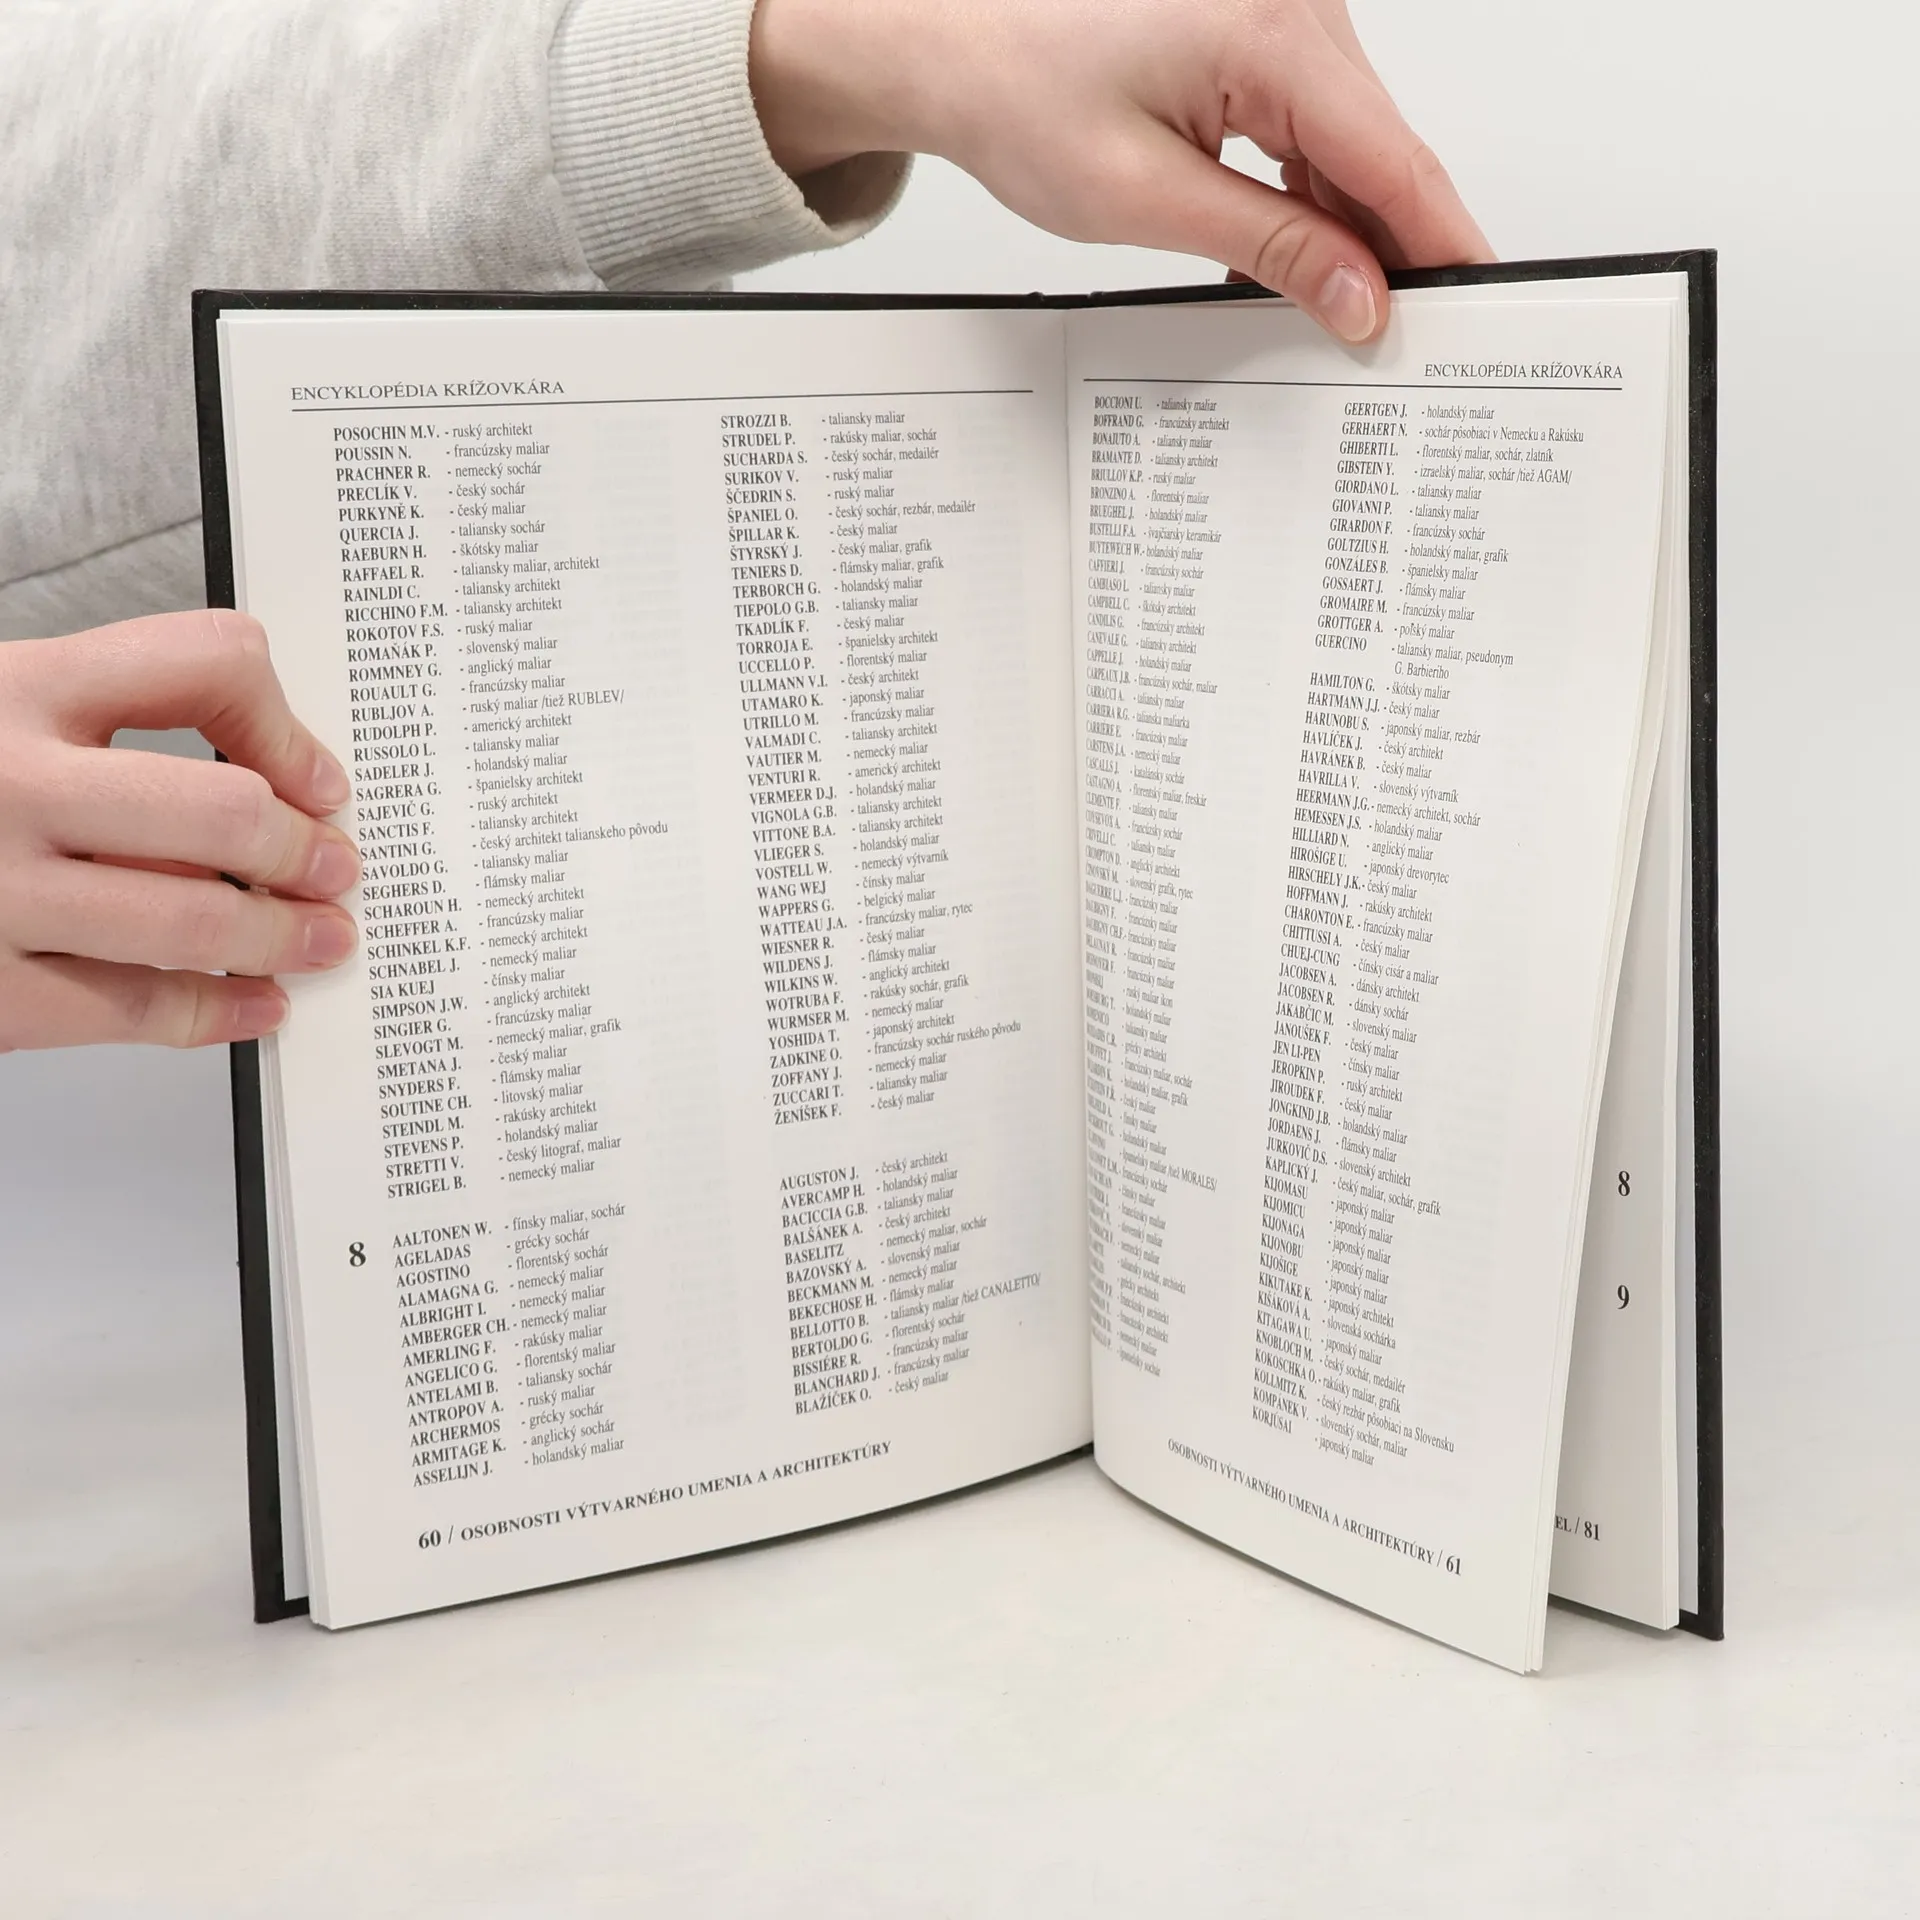 ENCYKLOPÉDIA KRÍŽOVKÁRA
POSOCHIN M.V. - ruský architekt
POUSSIN N. - francúzsky maliar
PRACHNER R. - nemecký sochár
PRECLÍK V. - český sochár
PURKYNĚ K. - český maliar
QUERCIA J. - taliansky sochár
RAEBURN H. - škótsky maliar
RAFFAEL R. - taliansky maliar, architekt
RAINLDI C. - taliansky architekt
RICCHINO F.M. - taliansky architekt
ROKOTOV F.S. - ruský maliar
ROMAŇÁK P. - slovenský maliar
ROMMNEY G. - anglický maliar
ROUAULT G. - francúzsky maliar
RUBLJOV A. - ruský maliar /tiež RUBLEV/
RUDOLPH P. - americký architekt
RUSSOLO L. - taliansky maliar
SADELER J. - holandský maliar
SAGRERA G. - španielsky architekt
SAJEVIČ G. - ruský architekt
SANCTIS F. - taliansky architekt
SANTINI G. - český architekt talianskeho pôvodu
SAVOLDO G. - taliansky maliar
SEGHERS D. - flámsky maliar
SCHAROUN H. - nemecký architekt
SCHEFFER A. - francúzsky maliar
SCHINKEL K.F. - nemecký architekt
SCHNABEL J. - nemecký maliar
SIA KUEJ - čínsky maliar
SIMPSON J.W. - anglický architekt
SINGIER G. - francúzsky maliar
SLEVOGT M. - nemecký maliar, grafik
SMETANA J. - český maliar
SNYDERS F. - flámsky maliar
SOUTINE CH. - litovský maliar
STEINDL M. - rakúsky architekt
STEVENS P. - holandský maliar
STRETTI V. - český litograf, maliar
STRIGEL B. - nemecký maliar
8
AALTONEN W. - fínsky maliar, sochár
AGELADAS - grécky sochár
AGOSTINO - florentský sochár
ALAMAGNA G. - nemecký maliar
ALBRIGHT I. - nemecký maliar
AMBERGER CH. - nemecký maliar
AMERLING F. - rakúsky maliar
ANGELICO G. - florentský maliar
ANTELAMI B. - taliansky sochár
ANTROPOV A. - ruský maliar
ARCHERMOS - grécky sochár
ARMITAGE K. - anglický sochár
ASSELIJN J. - holandský maliar
STROZZI B. - taliansky maliar
STRUDEL P. - rakúsky maliar, sochár
SUCHARDA S. - český sochár, medailér
SURIKOV V. - ruský maliar
ŠČEDRIN S. - ruský maliar
ŠPANIEL O. - český sochár, rezbár, medailér
ŠPILLAR K. - český maliar
ŠTYRSKÝ J. - český maliar, grafik
TENIERS D. - flámsky maliar, grafik
TERBORCH G. - holandský maliar
TIEPOLO G.B. - taliansky maliar
TKADLÍK F. - český maliar
TORROJA E. - španielsky architekt
UCCELLO P. - florentský maliar
ULLMANN V.I. - český architekt
UTAMARO K. - japonský maliar
UTRILLO M. - francúzsky maliar
VALMADI C. - taliansky architekt
VAUTIER M. - nemecký maliar
VENTURI R. - americký architekt
VERMEER D.J. - holandský maliar
VIGNOLA G.B. - taliansky architekt
VITTONE B.A. - taliansky architekt
VLIEGER S. - holandský maliar
VOSTELL W. - nemecký výtvarník
WANG WEJ - čínsky maliar
WAPPERS G. - belgický maliar
WATTEAU J.A. - francúzsky maliar, rytec
WIESNER R. - český maliar
WILDENS J. - flámsky maliar
WILKINS W. - anglický architekt
WOTRUBA F. - rakúsky sochár, grafik
WURMSER M. - nemecký maliar
YOSHIDA T. - japonský architekt
ZADKINE O. - francúzsky sochár ruského pôvodu
ZOFFANY J. - nemecký maliar
ZUCCARI T. - taliansky maliar
ŽENÍŠEK F. - český maliar
AUGUSTON J. - český architekt
AVERCAMP H. - holandský maliar
BACICCIA G.B. - taliansky maliar
BALŠÁNEK A. - český architekt
BASELITZ - nemecký maliar, sochár
BAZOVSKÝ A. - slovenský maliar
BECKMANN M. - nemecký maliar
BEKECHOSE H. - flámsky maliar
BELLOTTO B. - taliansky maliar /tiež CANALETTO/
BERTOLDO G. - florentský sochár
BISSIÉRE R. - francúzsky maliar
BLANCHARD J. - francúzsky maliar
BLAŽÍČEK O. - český maliar
60 / OSOBNOSTI VÝTVARNÉHO UMENIA A ARCHITEKTÚRY
ENCYKLOPÉDIA KRÍŽOVKÁRA
BOCCIONI U. - taliansky maliar
BOFFRAND G. - francúzsky architekt
BONAIUTO A. - taliansky maliar
BRAMANTE D. - taliansky architekt
BRIULLOV K.P. - ruský maliar
BRONZINO A. - florentský maliar
BRUEGHEL J. - holandský maliar
BUSTELLI F.A. - švajčiarsky keramikár
BUYTEWECH W.- holandský maliar
CAFFIERI J. - francúzsky sochár
CAMBIASO L. - taliansky maliar
CAMPBELL C. - škótsky architekt
CANDILIS G. - francúzsky architekt
CANEVALE G. - taliansky architekt
CAPPELLE J. - holandský maliar
CARPEAUX J.B. - francúzsky sochár, maliar
CARRACCI A. - taliansky maliar
CARRIERA R.G. - talianska maliarka
CARRIERE E. - francúzsky maliar
CARSTENS J.A. - nemecký maliar
CASCALLS J. - katalánsky sochár
CASTAGNO A. - florentský maliar, freskár
CLEMENTE F. - taliansky maliar
COYSEVOX A. - francúzsky sochár
CRIVELLI C. - taliansky maliar
CROMPTON D. - anglický architekt
- slovenský grafik, rytec
DAGUERRE L.J. - francúzsky maliar
DAUBIGNY F. - francúzsky maliar
DAUBIGNY CH.F.- francúzsky maliar
DELAUNAY R. - francúzsky maliar
- francúzsky maliar
- ruský maliar ikon
- holandský maliar
- taliansky maliar
- grécky architekt
- francúzsky maliar, sochár
- holandský maliar, grafik
- český maliar
- fínsky maliar
- holandský maliar
- španielsky maliar /tiež MORALES/
- francúzsky sochár
- čínsky maliar
- francúzsky maliar
- slovenský maliar
- nemecký maliar
- taliansky sochár, architekt
- grécky architekt
- francúzsky architekt
- francúzsky architekt
- nemecký maliar
- španielsky sochár
GEERTGEN J. - holandský maliar
GERHAERT N. - sochár pôsobiaci v Nemecku a Rakúsku
GHIBERTI L. - florentský maliar, sochár, zlatník
GIBSTEIN Y. - izraelský maliar, sochár /tiež AGAM/
GIORDANO L. - taliansky maliar
GIOVANNI P. - taliansky maliar
GIRARDON F. - francúzsky sochár
GOLTZIUS H. - holandský maliar, grafik
GONZÁLES B. - španielsky maliar
GOSSAERT J. - flámsky maliar
GROMAIRE M. - francúzsky maliar
GROTTGER A. - poľský maliar
GUERCINO - taliansky maliar, pseudonym
G. Barbieriho
HAMILTON G. - škótsky maliar
HARTMANN J.J. - český maliar
HARUNOBU S. - japonský maliar, rezbár
HAVLÍČEK J. - český architekt
HAVRÁNEK B. - český maliar
HAVRILLA V. - slovenský výtvarník
HEERMANN J.G.- nemecký architekt, sochár
HEMESSEN J.S. - holandský maliar
HILLIARD N. - anglický maliar
HIROŠIGE U. - japonský drevorytec
HIRSCHELY J.K.- český maliar
HOFFMANN J. - rakúsky architekt
CHARONTON E. - francúzsky maliar
CHITTUSSI A. - český maliar
CHUEJ-CUNG - čínsky cisár a maliar
JACOBSEN A. - dánsky architekt
JACOBSEN R. - dánsky sochár
JAKABČIC M. - slovenský maliar
JANOUŠEK F. - český maliar
JEN LI-PEN - čínsky maliar
JEROPKIN P. - ruský architekt
JIROUDEK F. - český maliar
JONGKIND J.B. - holandský maliar
JORDAENS J. - flámsky maliar
JURKOVIČ D.S. - slovenský architekt
KAPLICKÝ J. - český maliar, sochár, grafik
KIJOMASU - japonský maliar
KIJOMICU - japonský maliar
KIJONAGA - japonský maliar
KIJONOBU - japonský maliar
KIJOŠIGE - japonský maliar
KIKUTAKE K. - japonský architekt
KIŠÁKOVÁ A. - slovenská sochárka
KITAGAWA U. - japonský maliar
KNOBLOCH M. - český sochár, medailér
KOKOSCHKA O.- rakúsky maliar, grafik
KOLLMITZ K. - český rezbár pôsobiaci na Slovensku
KOMPÁNEK V. - slovenský sochár, maliar
KORJUSAI - japonský maliar
OSOBNOSTI VÝTVARNÉHO UMENIA A ARCHITEKTÚRY / 61
8
9
EL / 81